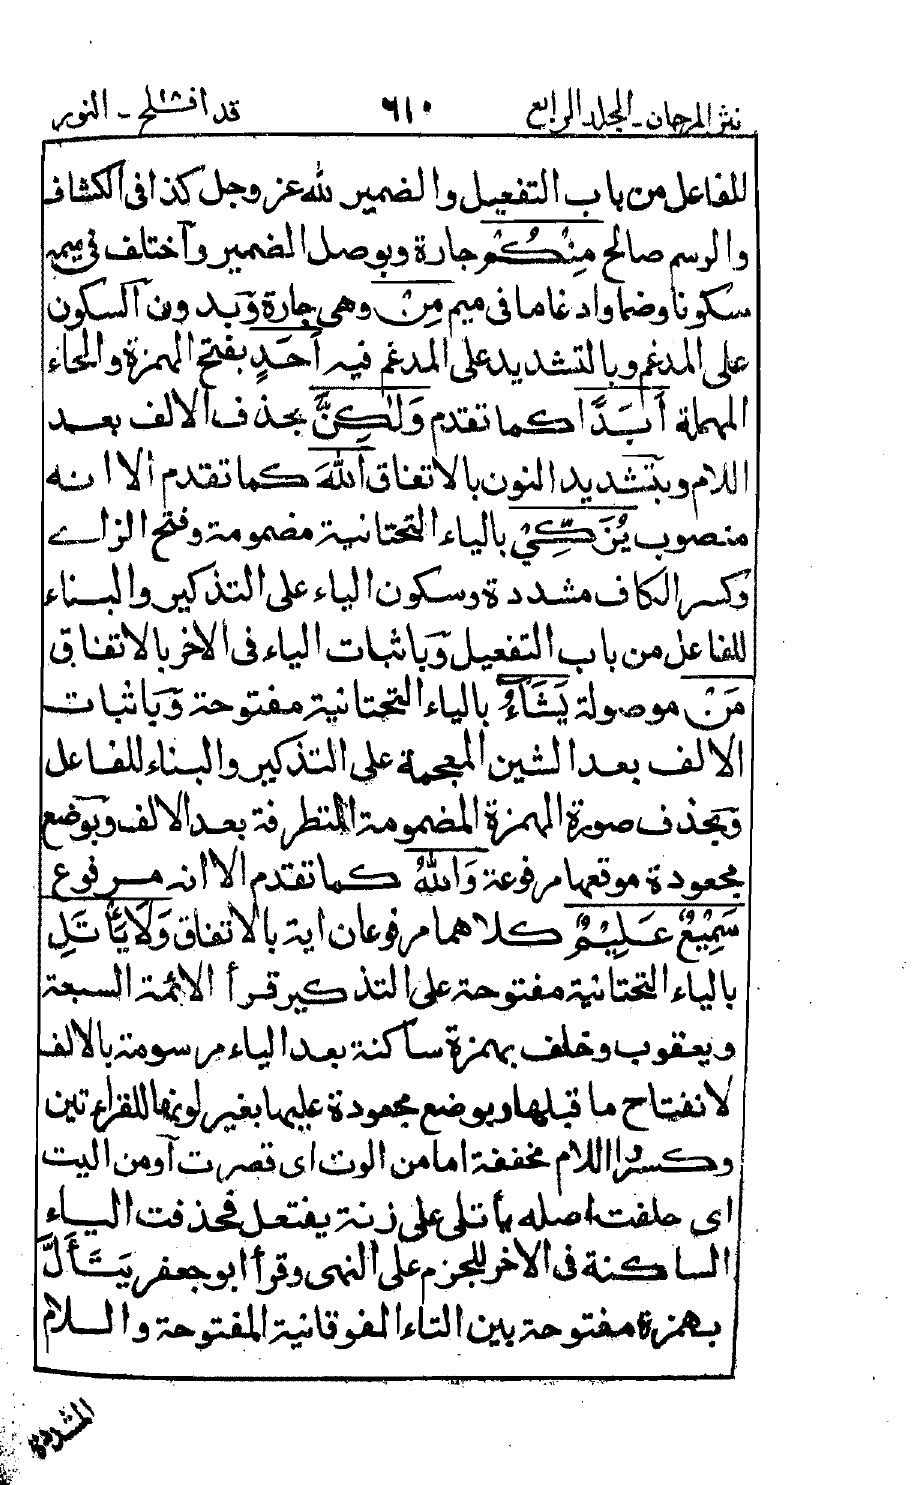 نثر المرجان - المجلد الرابع ٦١٠ قد افلح ١٨ - النور
للفاعل من باب التفعيل والضمير لله عز وجل كذا في الكشاف
والرسم صالح مِنْكُمْ جارة وبوصل الضمير واختلف في ميمه
سكونا وضما وادغاما في ميم مِنْ وهي جارة وبدون السكون
على المدغم وبالتشديد على المدغم فيه أَحَدٍ بفتح الهمزة والحاء
المهملة أَبَدًا كما تقدم وَلٰكِنَّ بحذف الالف بعد
اللام وبتشديد النون بالاتفاق اللهَ كما تقدم الا انه
منصوب يُزَكِّيْ بالياء التحتانية مضمومة وفتح الزاے
وكسر الكاف مشددة وسكون الياء على التذكير والبناء
للفاعل من باب التفعيل وباثبات الياء في الاخر بالاتفاق
مَنْ موصولة يَشَاءُ بالياء التحتانية مفتوحة وباثبات
الالف بعد الشين المعجمة على التذكير والبناء للفاعل
وبحذف صورة الهمزة المضمومة المتطرفة بعد الالف وبوضع
مجعودة موقعها مرفوعة وَاللهُ كما تقدم الا انه مرفوع
سَمِيْعٌ عَلِيْمٌ كلاهما مرفوعان اية بالاتفاق وَلَا يَأْتَلِ
بالياء التحتانية مفتوحة على التذكير قرأ الائمة السبعة
ويعقوب وخلف بهمزة ساكنة بعد الياء مرسومة بالالف
لانفتاح ما قبلها وبوضع مجعودة عليها بغير لونها للقراءتين
وكسر اللام مخففة اما من الوت اى قصرت او من اليت
اى حلفت اصله يأتلى على زنة يفتعل فحذفت الياء
الساكنة في الاخر للجزم على النهى وقرأ ابو جعفر يَتَأَلَّ
بهمزة مفتوحة بين التاء الفوقانية المفتوحة واللام
المشددة